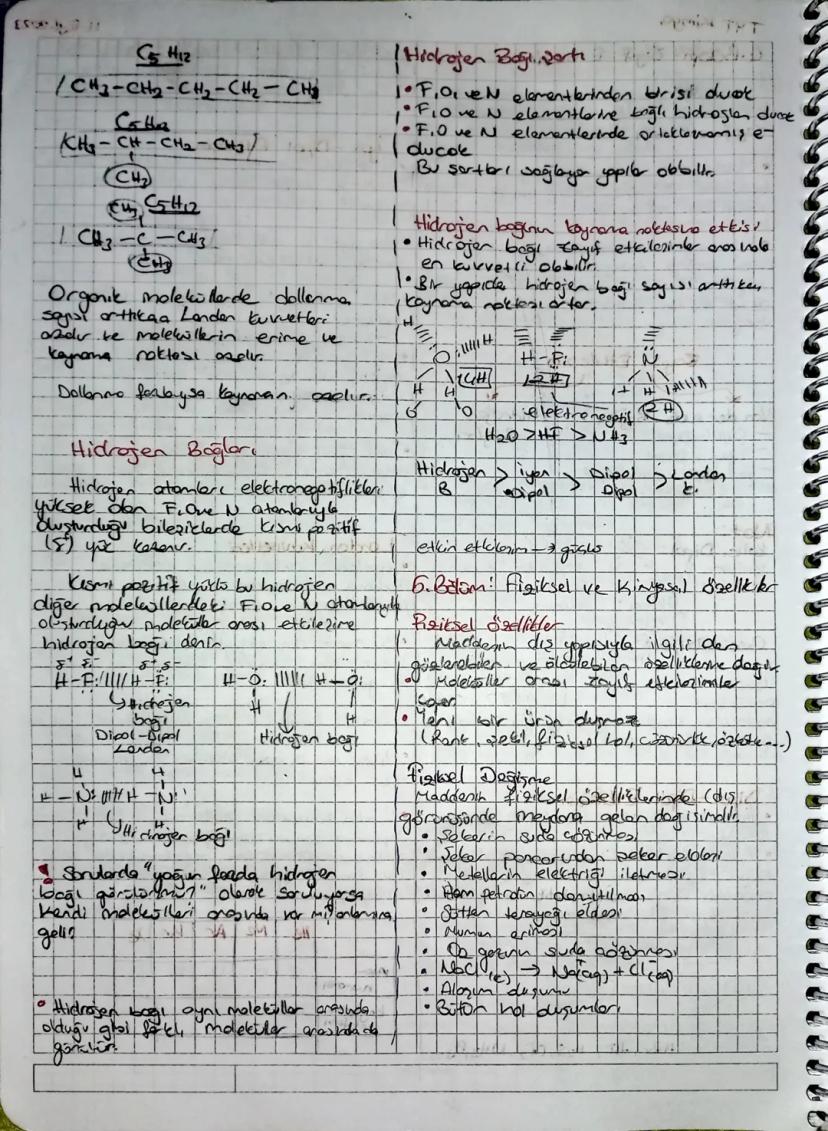 C5 H12
CH3-CH2-CH2-CH2-CH3
C5H12
CH3-CH-CH2-CH3
CH3
CH3 C5H12
CH3-C-CH3
CH3
Organik moleküllerde dallanma
sayısı arttıkça London kuvvetleri
azalır ve moleküllerin erime ve
kaynama noktası azalır.
Dallanma fazlaysa kaynaman azalır.
Hidrojen Bağları
Hidrojen atomları elektronegatiflikleri
yüksek olan F, O ve N atomlarıyla
oluşturduğu bileşiklerde kısmi pozitif
(δ+) yük kazanır.
Kısmi pozitif yüklü bu hidrojen
diğer moleküllerdeki F, O ve N atomlarıyla
oluşturduğu moleküller arası etkileşime
hidrojen bağı denir.
δ+ δ- δ+ δ-
H-F: H-F: H-O: H-O:
H H
Hidrojen
bağı
Dipol-Dipol
London
Hidrojen bağı
H H
H-N: H-N:
H H
Hidrojen bağı
! Sorularda "yoğun fazda hidrojen
bağı görülür mü?" olarak soruluyorsa
kendi molekülleri arasında var mı anlamına
gelir
• Hidrojen bağı aynı moleküller arasında
olduğu gibi farklı moleküller arasında da
görülür.
Hidrojen Bağı şartı
• F, O, ve N elementlerinden birisi olacak
• F, O ve N elementlerine bağlı hidrojen olacak
• F, O ve N elementlerinde ortaklanmamış e-
olacak
Bu şartları sağlayan yapılar olabilir.
Hidrojen bağının kaynama noktasına etkisi
• Hidrojen bağı zayıf etkileşimler arasında
en kuvvetli olabilir.
• Bir yapıda hidrojen bağı sayısı arttıkça
kaynama noktası artar.
H
O H H-F: N
H H 4H 2H H H H
O O elektronegatif 2H
H2O > HF > NH3
Hidrojen > iyon > Dipol > London
B Dipol Dipol K.
etkin etkileşim → güçlü
6. Bölüm: Fiziksel ve Kimyasal özellikler
Fiziksel özellikler
Maddenin dış yapısıyla ilgili olan
gözlenebilen ve ölçülebilen özelliklerine denir
• Moleküller arası zayıf etkileşimler
• Yeni bir ürün oluşmaz
(Renk, şekil, fiziksel hal, çözünürlük, özkütle...)
Fiziksel Değişme
Maddenin fiziksel özelliklerinde (dış
görünüşünde meydana gelen değişimdir.
• Şekerin suda çözünmesi
• Şeker pancarından şeker eldesi
• Metallerin elektriği iletmesi
• Ham petrolün damıtılması
• Sütten tereyağı eldesi
• Mumun erimesi
• O2 gazının suda çözünmesi
• NaCl(k) → Na+(aq) + Cl-(aq)
• Alaşım oluşumu
• Bütün hal oluşumları